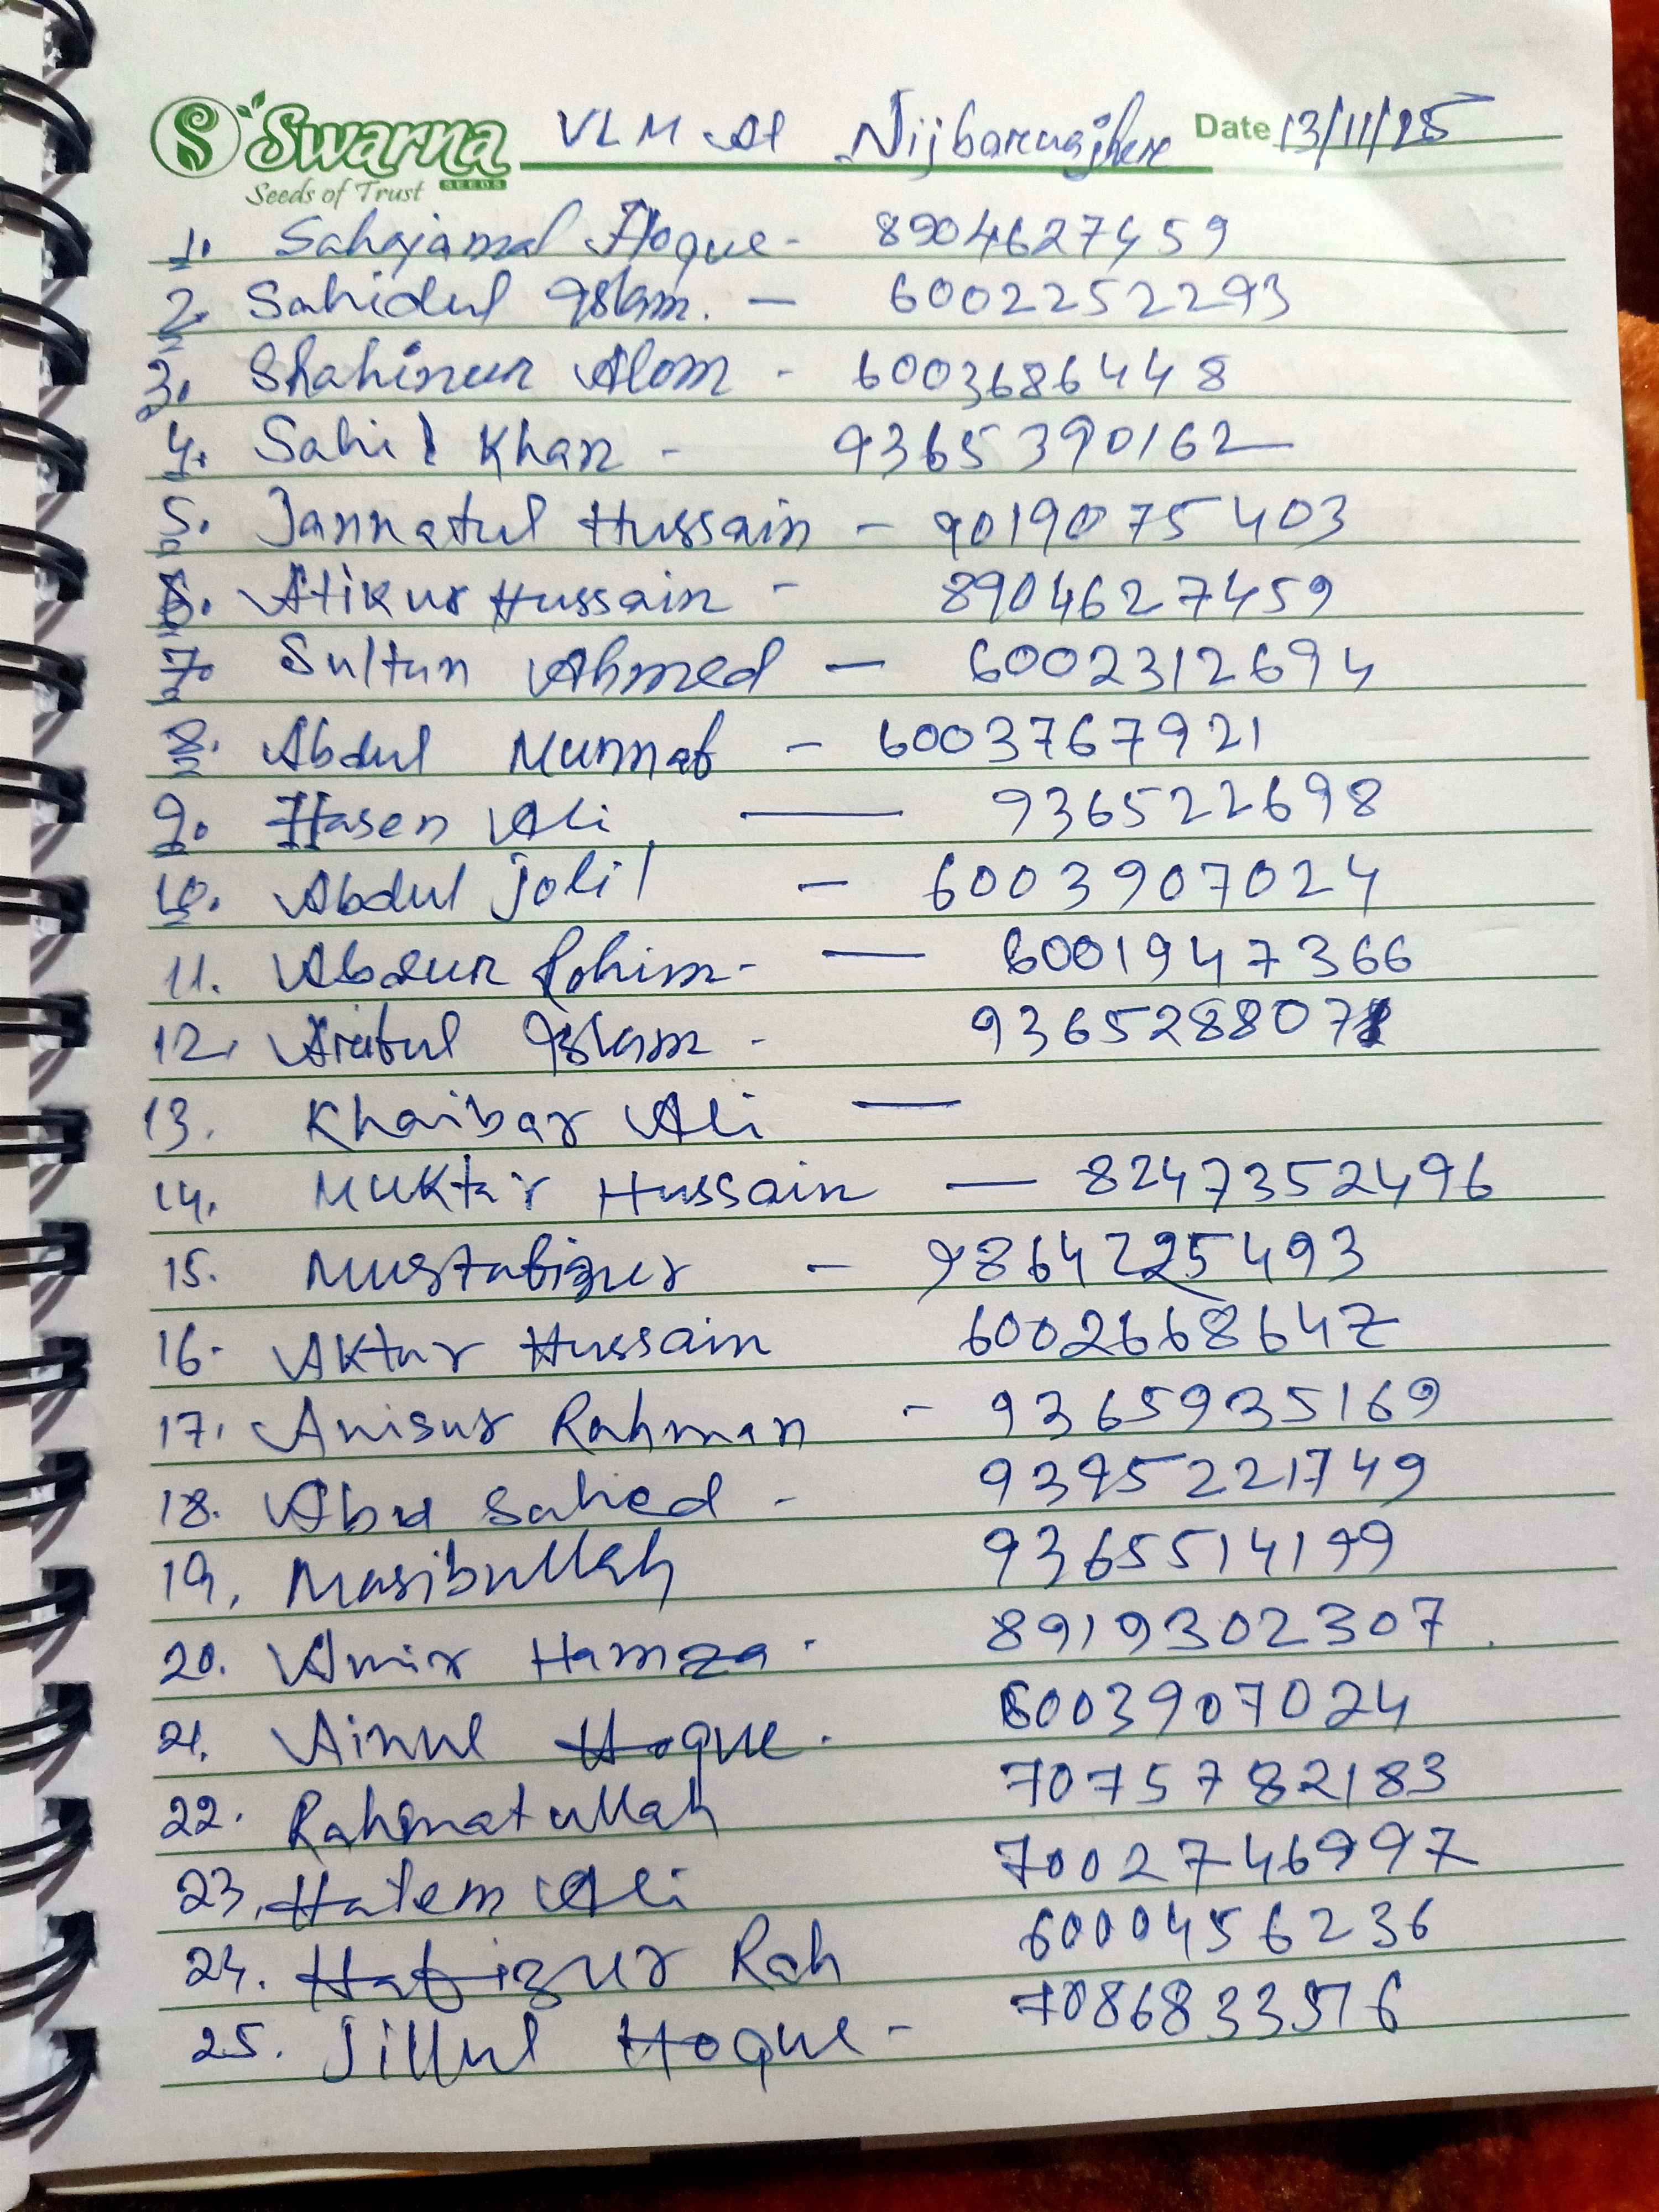 Swarna
SEEDS
Seeds of Trust
VLM At Date 13/11/25
1. Sahajamal Hoque - 8904627459
2. Sahidul Islam. — 60022252293
3. Shahinur Alom - 6003686448
4. Sahil Khan - 9365390162
5. Jannatul Hussain - 9019075403
6. Atikur Hussain - 8904627459
7. Sultan Ahmed — 6002312694
8. Abdul Munnaf - 6003767921
9. Hasen Ali — 936522698
10. Abdul Jolil — 6003907024
11. Abdur Rohim - — 6001947366
12. Islam - 936528807
13. Khaibar Ali —
14. Muktar Hussain — 8247352496
15. Mustafizur - 9864225493
16. Aktar Hussain 6002668647
17. Anisur Rahman - 9365935169
18. Abu Sahed - 9395221749
19. Masibullah 9365514199
20. Amir Hamza - 8919302307.
21. Ainul Hoque. 6003907024
22. Rahmatullah 7075782183
23. Hatem Ali 7002746997
24. Hafizur Rah 6000456236
25. Jillul Hoque - 7086833576